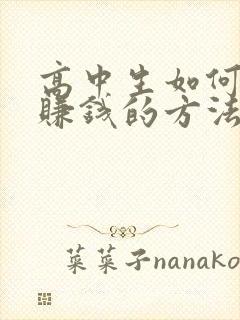 高中生如何
赚钱的方法
菜菜子nanako